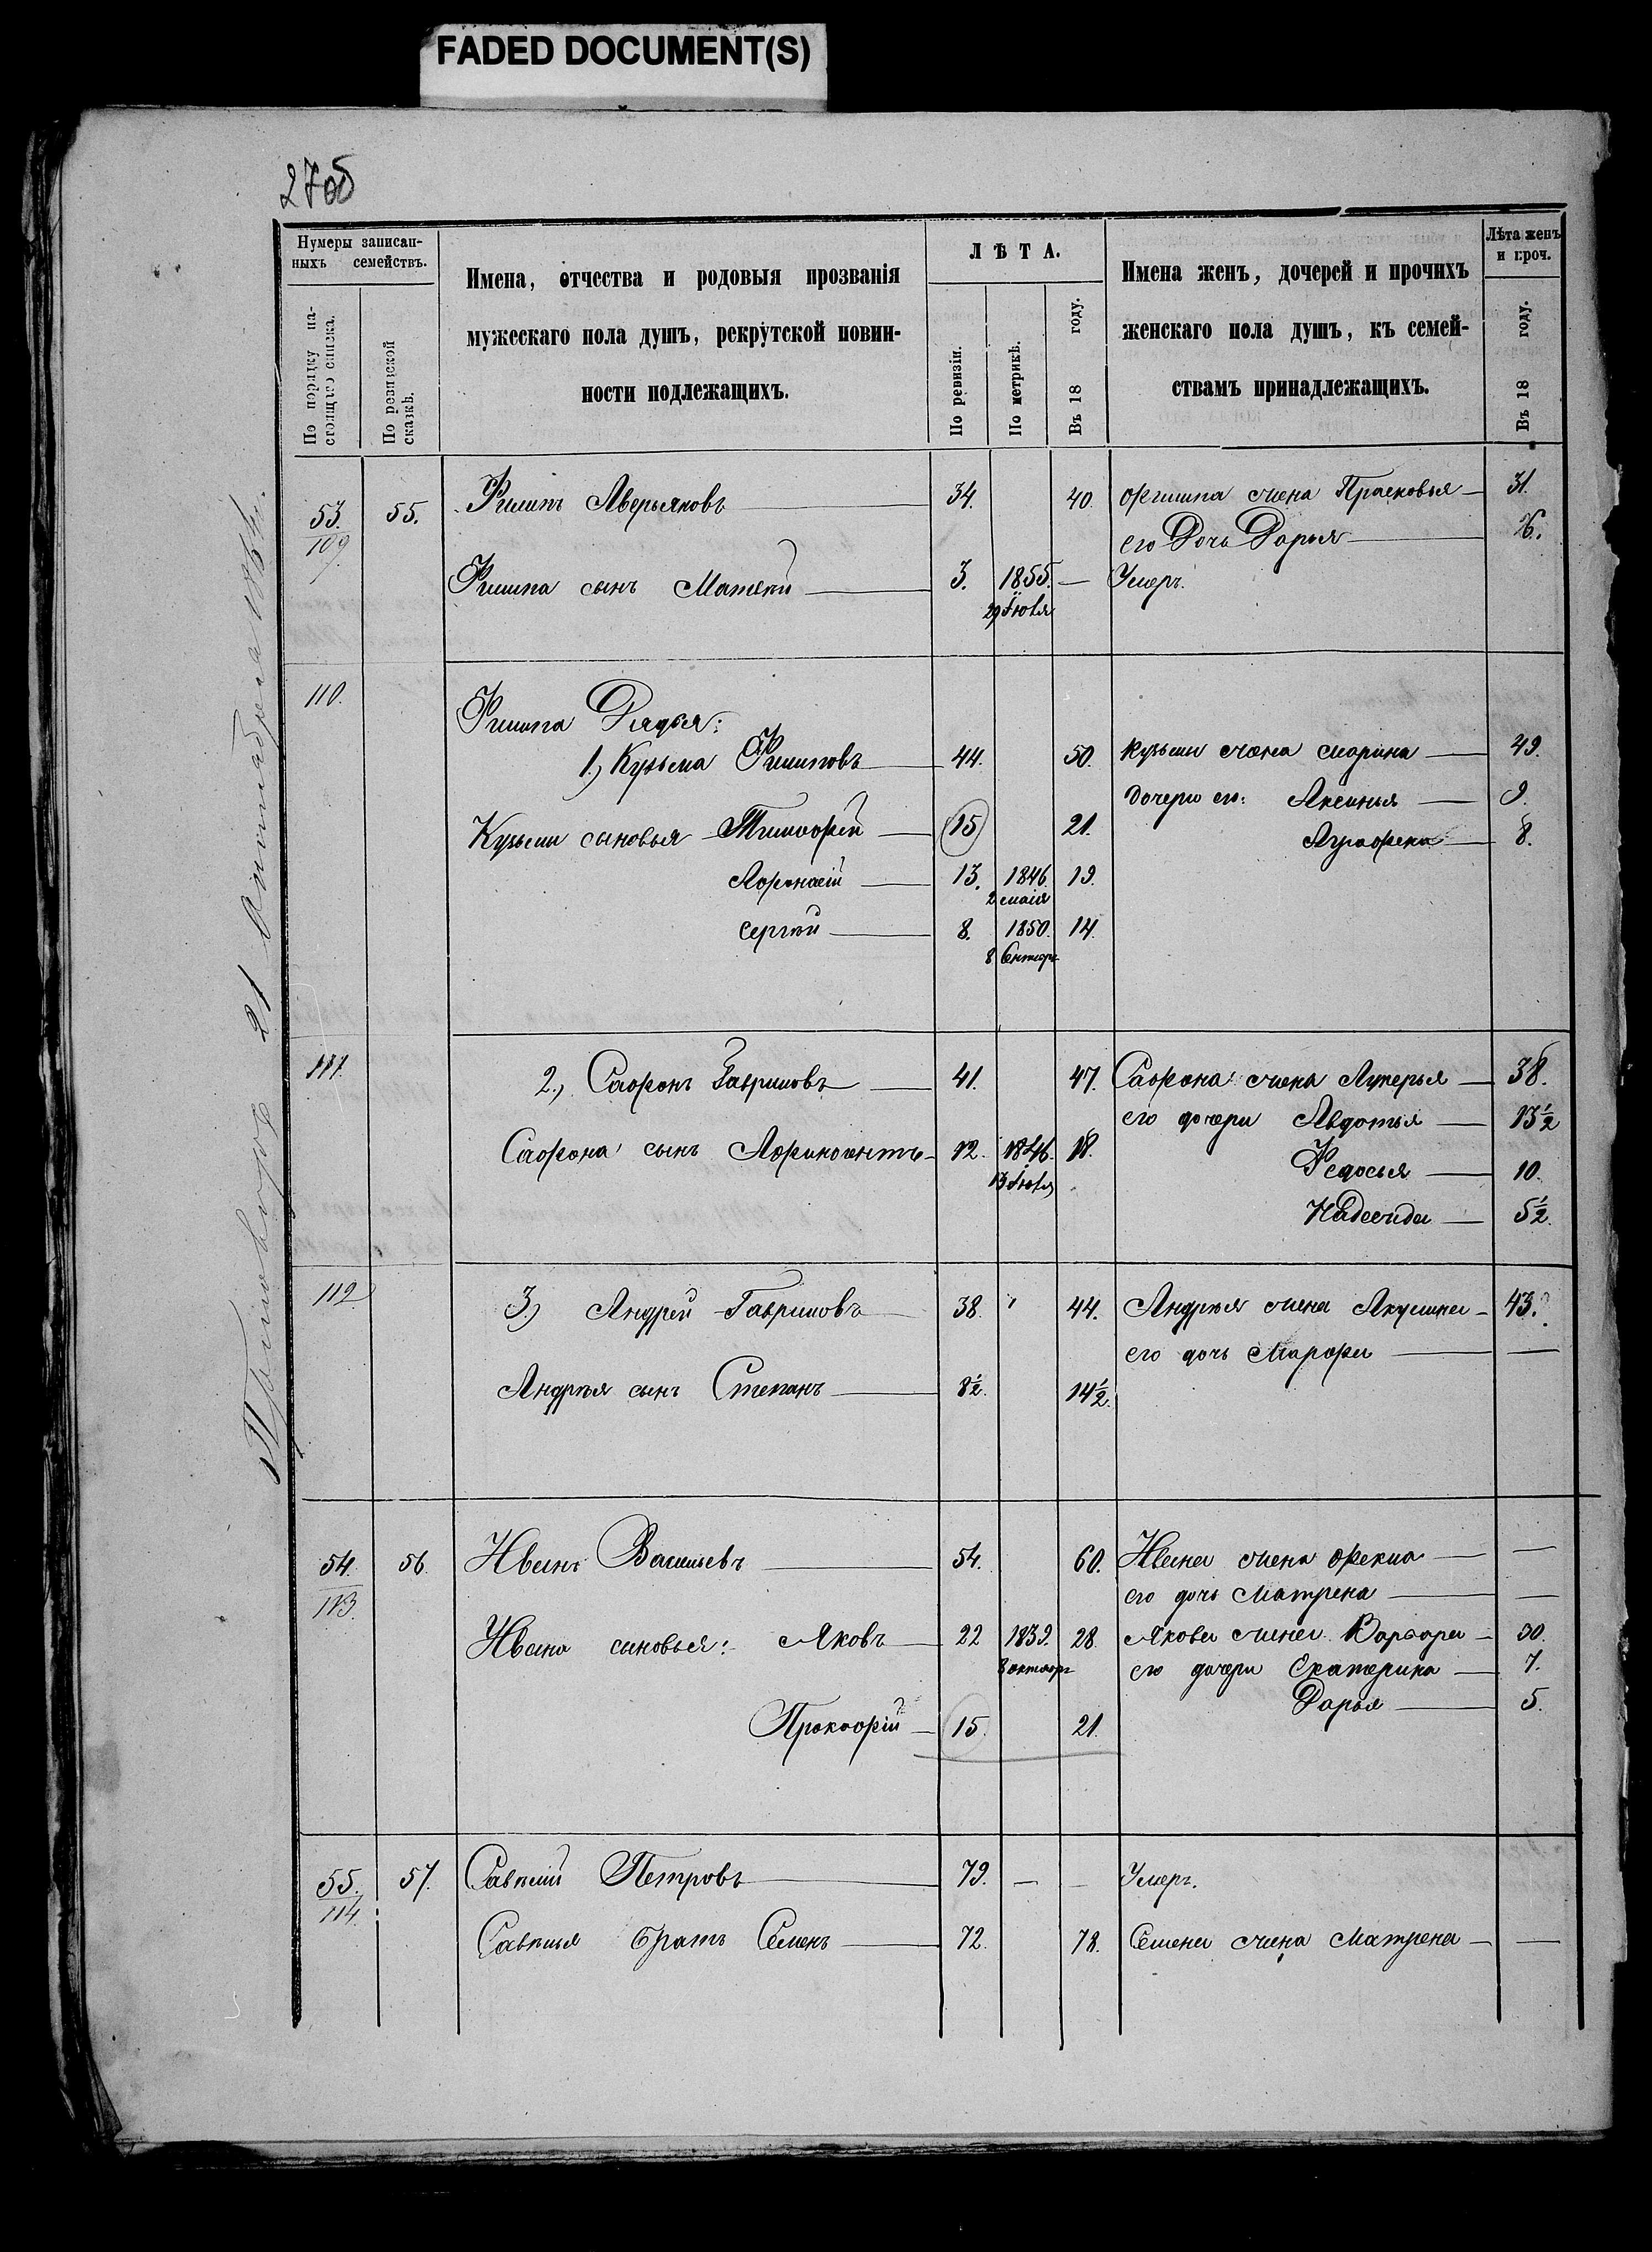 FADED DOCUMENT(S)
27об
Нумеры записанныхъ семействъ.
По порядку настоящаго списка.
По ревизской сказкѣ.
Имена, отчества и родовыя прозванія
мужескаго пола душъ, рекрутской повин-
ности подлежащихъ.
ЛѢТА.
По ревизіи.
По метрикѣ.
Въ 18 году.
Имена женъ, дочерей и прочихъ
женскаго пола душъ, къ семей-
ствамъ принадлежащихъ.
Лѣта женъ и проч.
Въ 18 году.
53. 109 55. Филипъ Аверьяновъ 34. 40. Филипа жена Прасковья 31.
его Дочь Дарья
Филипа сынъ Матвѣй 3. 1855. — Умеръ.
29 Іюля
110. Филипа Дядья:
1.) Кузьма Филиповъ 44. 50. Кузьмы жена Марина 49.
дочери его: Аксинья 9.
Кузьмы сыновья Тимофей 15 21. Аграфена 8.
Афонасій 13. 1846. 19.
2 маія
Сергѣй 8. 1850. 14.
8 Сентяр
111. 2.) Сафронъ Гавриловъ 41. 47. Сафрона жена Лукерья 38.
его дочери Авдотья 13½
Сафрона сынъ Афиногентъ 12. 1846. 18. Федосья 10.
13 Іюля
Надежда 5½.
112 3.) Андрей Гавриловъ 38. 44. Андрея жена Акулина 43.
его дочь Марфа —
Андрея сынъ Степанъ 8½. 14½.
54. 113. 56 Иванъ Васильевъ 54. 60. Ивана жена Фекла —
его дочь Матрена —
Ивана сыновья: Яковъ 22 1839. 28 Якова жена Варвара 30.
8 октяр его дочери Екатерина 7.
Дарья 5.
Прокофій 15. 21.
55. 114. 57. Савелій Петровъ 79. — — Умеръ.
Савелья братъ Семенъ 72. 78. Семена жена Матрена —
21